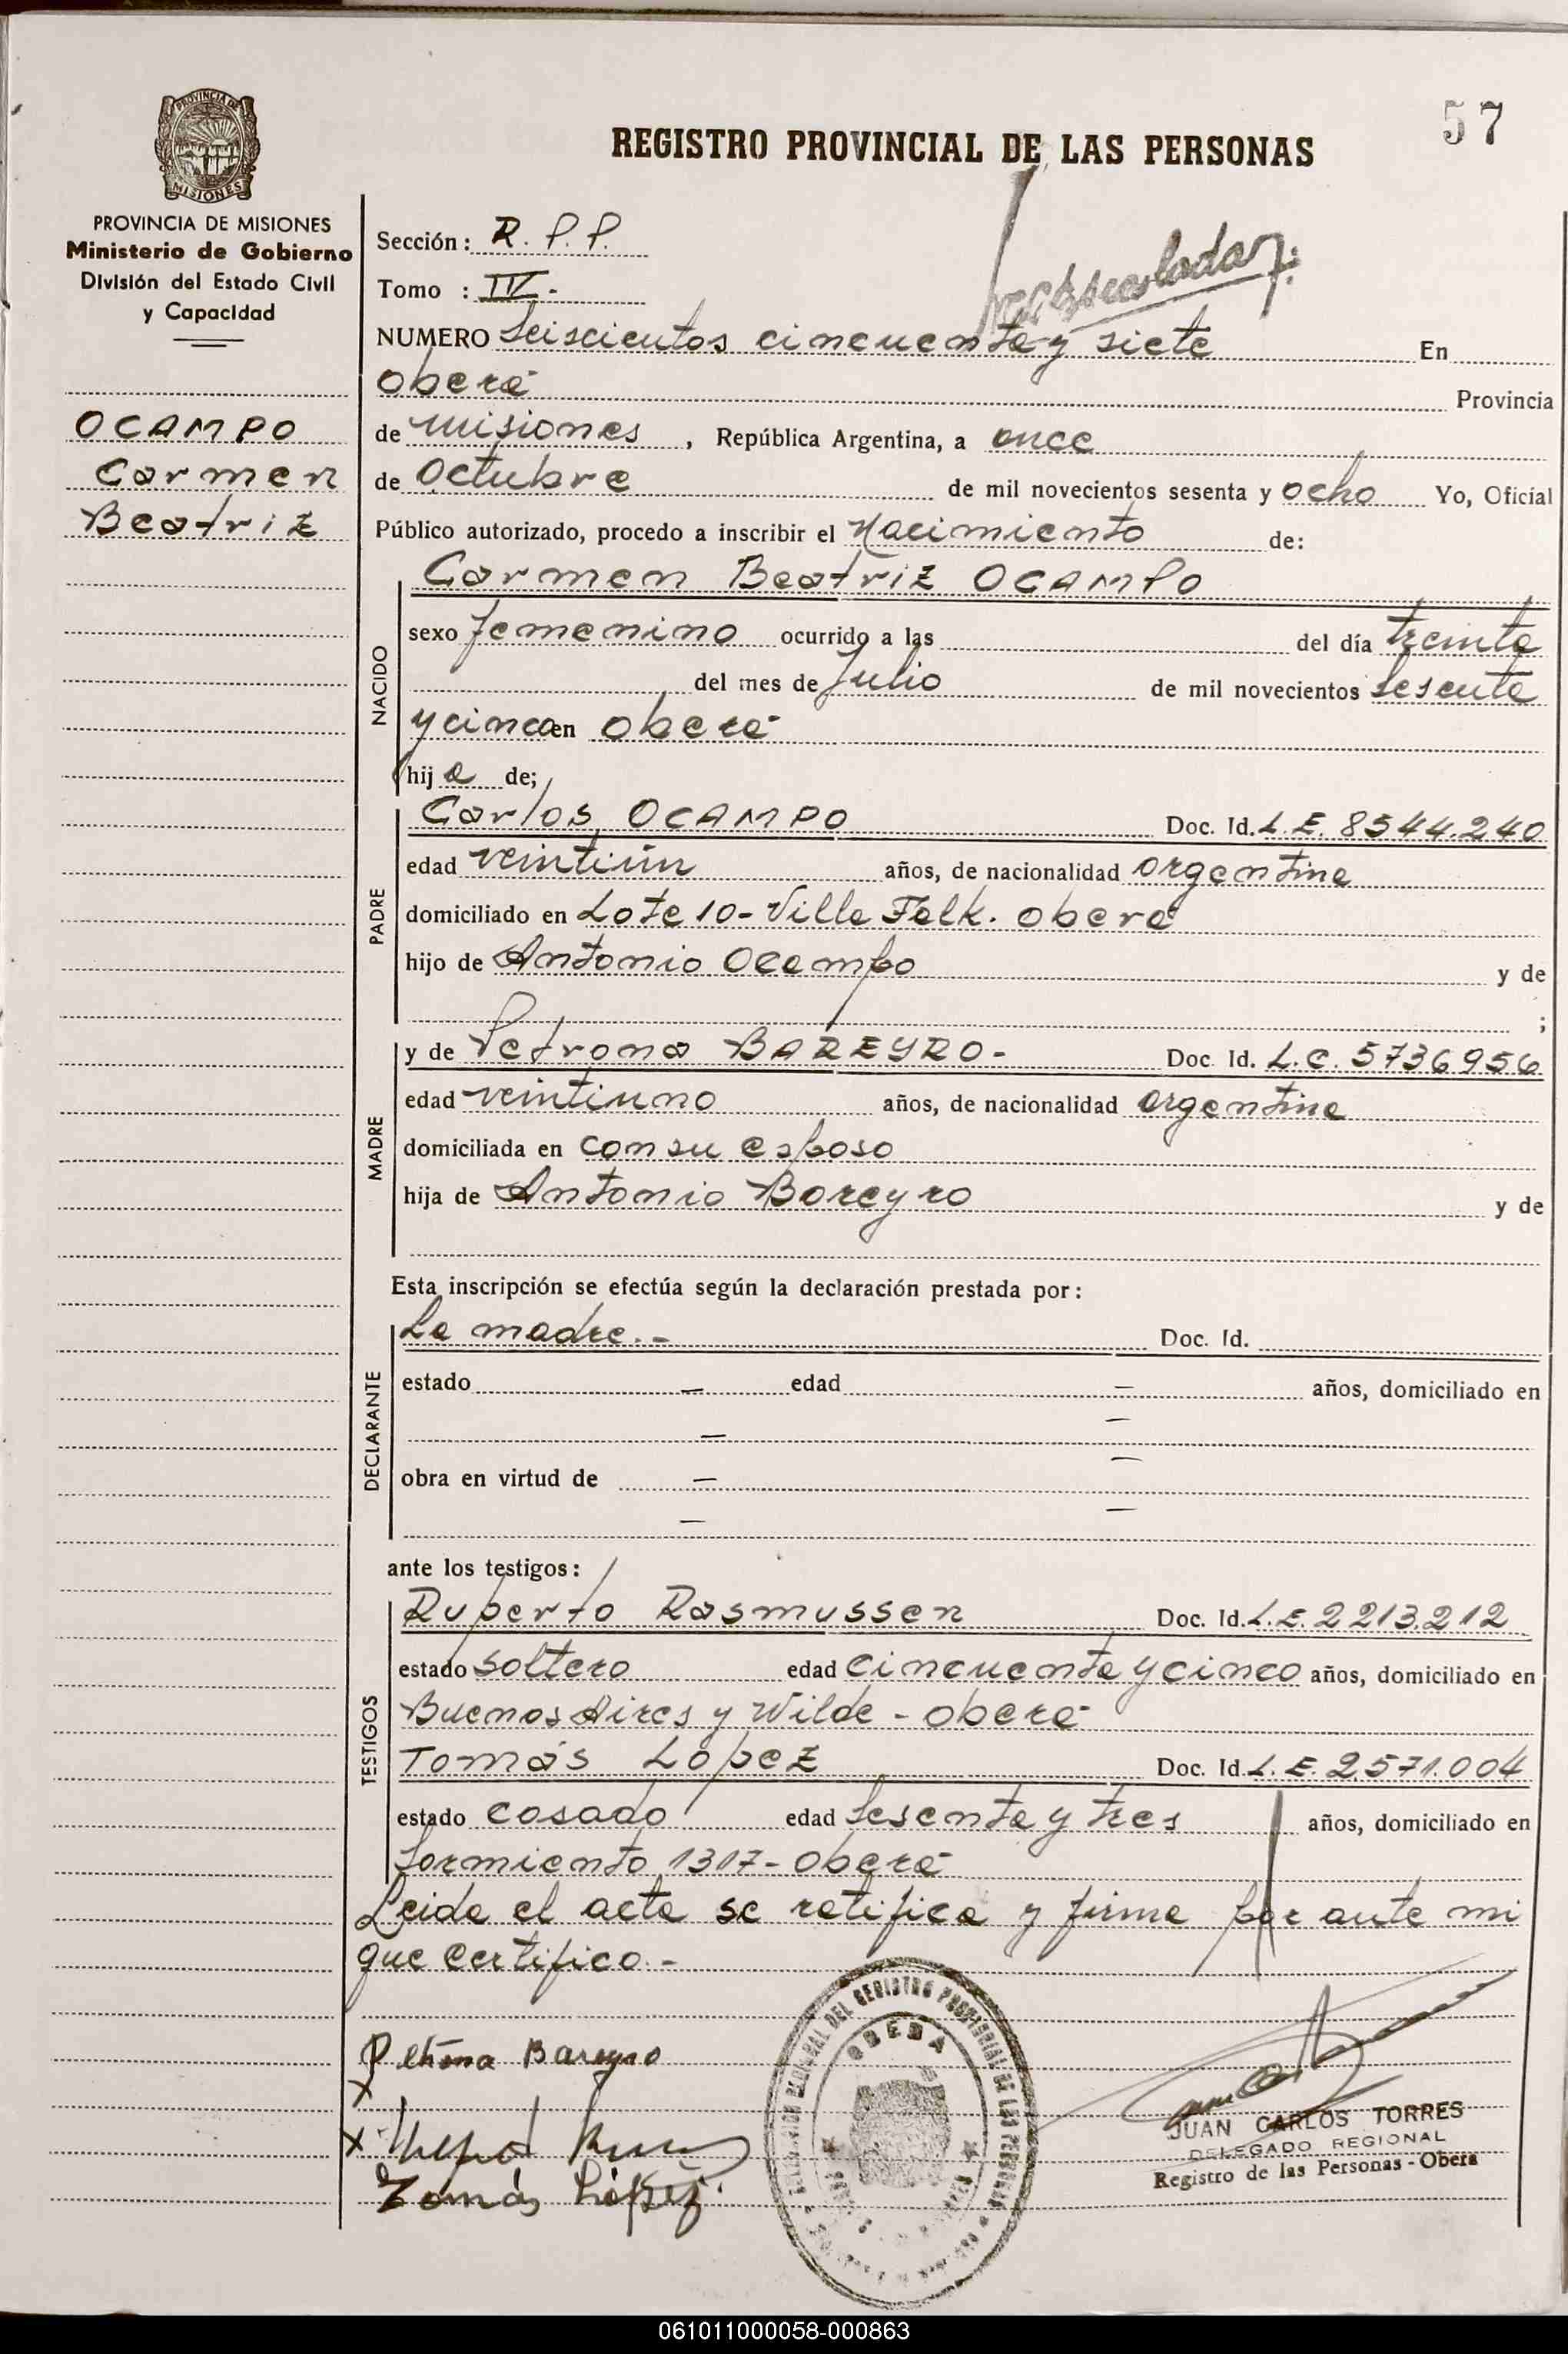 57
REGISTRO PROVINCIAL DE LAS PERSONAS
PROVINCIA DE
MISIONES
PROVINCIA DE MISIONES
Ministerio de Gobierno
División del Estado Civil
y Capacidad
OCAMPO
Carmen
Beatriz
Sección: R. P. P.
Tomo : IV-
NUMERO Seiscientos cincuenta y siete En
Oberá Provincia
de Misiones, República Argentina, a once
de Octubre de mil novecientos sesenta y ocho Yo, Oficial
Público autorizado, procedo a inscribir el Nacimiento de:
Carmen Beatriz OCAMPO
NACIDO
sexo femenino ocurrido a las del día treinta
del mes de Julio de mil novecientos sesenta
y cinco en Oberá
hija de;
PADRE
Carlos OCAMPO Doc. Id. L.E. 8544.240
edad veintiún años, de nacionalidad argentina
domiciliado en Lote 10- Villa Falk. Oberá
hijo de Antonio Ocampo y de
;
MADRE
y de Petrona BAREYRO- Doc. Id. L.C. 5736956
edad veintiuno años, de nacionalidad argentina
domiciliada en con su esposo
hija de Antonio Bareyro y de
Esta inscripción se efectúa según la declaración prestada por:
DECLARANTE
La madre.- Doc. Id.
estado — edad — años, domiciliado en
— —
obra en virtud de — —
— —
ante los testigos:
TESTIGOS
Ruperto Rasmussen Doc. Id. L.E. 2213.212
estado soltero edad cincuenta y cinco años, domiciliado en
Buenos Aires y Wilde - Oberá
Tomás López Doc. Id. L.E. 2.571.004
estado casado edad sesenta y tres años, domiciliado en
Sarmiento 1317- Oberá
Leida el acta se ratifica y firma por ante mi
que certifico.-
Petrona Bareyro
Tomás López
OBERA
JUAN CARLOS TORRES
DELEGADO REGIONAL
Registro de las Personas - Obera
061011000058-000863